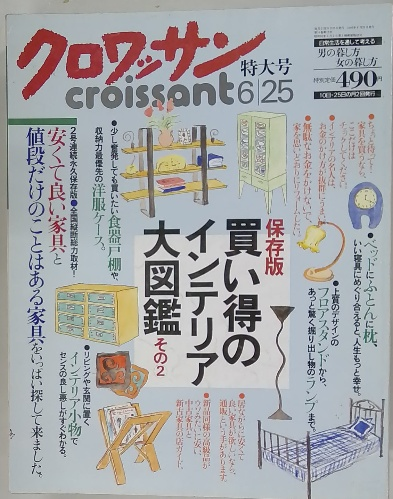 クロワッサン
特大号
croissant 6/25
日常生活を通して考える
男の暮し方
女の暮し方
特別定価490円
10日・25日の月2回発行
保存版
買い得の
インテリア
大図鑑
その2
●ベッドにふとんに枕、
いい寝具にめぐり合えると、人生もっと幸せ。
●上質のデザインの
フロアスタンドから、
あっと驚く掘り出し物のランプまで。
●少し奮発しても買いたい食器戸棚や、
収納力最優先の洋服ケース。
2号連続永久保存版●全国縦断総力取材!
安くて良い家具と
値段だけのことはある家具をいっぱい探して来ました。
●リビングや玄関に置く
インテリア小物で
センスの良し悪しがすぐわかる。
●居ながらに安くて
良い家具が欲しいなら、
通販という手があります。
●新品同様の高級品が
中古家具と
新古家具の店ガイド。